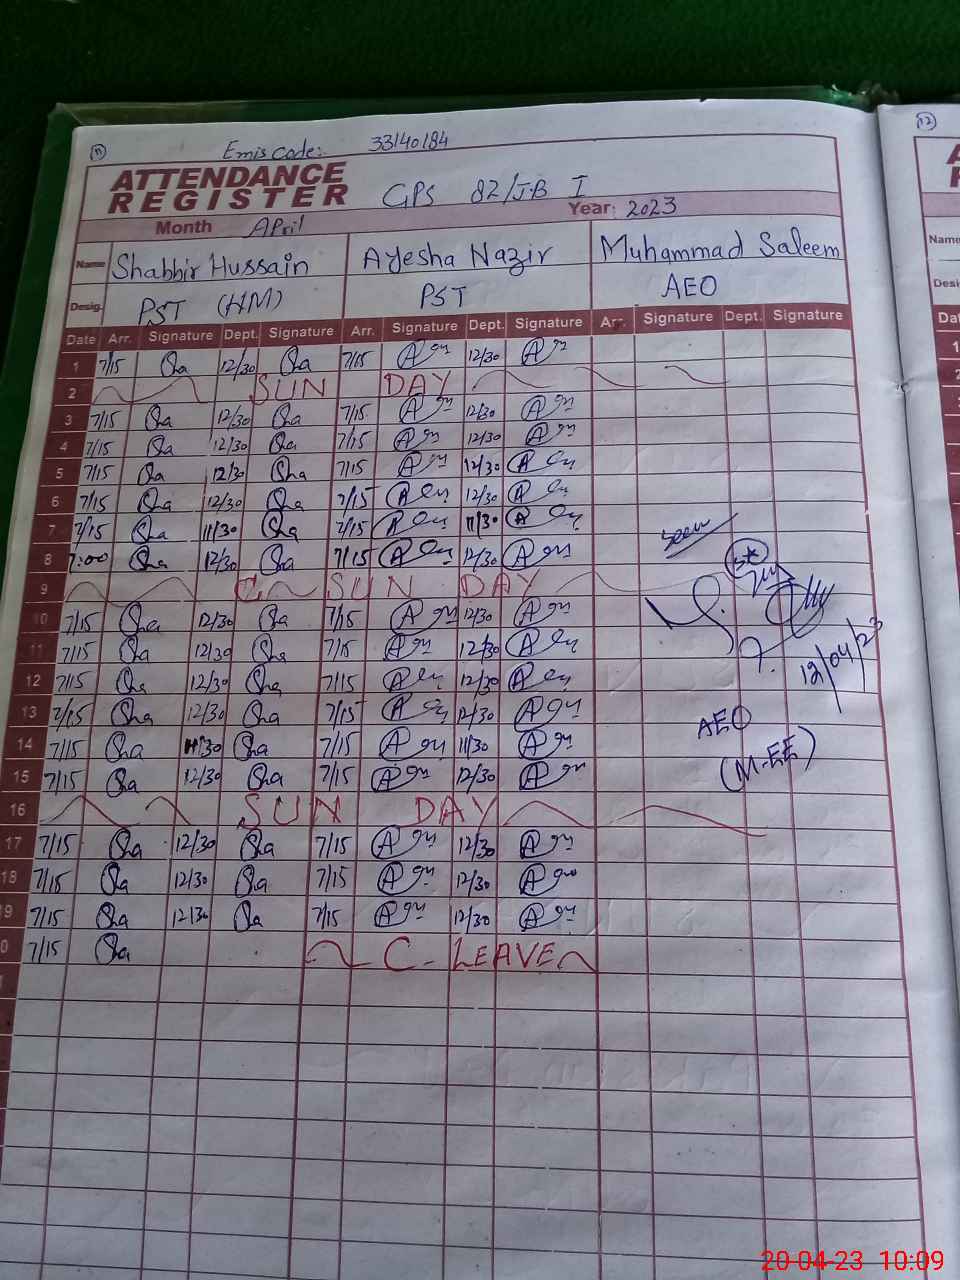 11
12
Emis Code: 33140184
ATTENDANCE
REGISTER
GPS 82/JB I
Month April Year: 2023
Name Shabbir Hussain Ayesha Nazir Muhammad Saleem
Desig. PST (HM) PST AEO
Date Arr. Signature Dept. Signature Arr. Signature Dept. Signature Arr. Signature Dept. Signature
1 7/15 Sha 12/30 Sha 7/15 12/30
2 SUN DAY
3 7/15 Sha 12/30 Sha 7/15 12/30
4 7/15 Sha 12/30 Sha 7/15 12/30
5 7/15 Sha 12/30 Sha 7/15 12/30
6 7/15 Sha 12/30 Sha 7/15 12/30
7 7/15 Sha 11/30 Sha 7/15 11/30
seen
8 7:00 Sha 12/30 Sha 7/15 12/30
9 SUN DAY
10 7/15 Sha 12/30 Sha 7/15 12/30
11 7/15 Sha 12/30 Sha 7/15 12/30
12/04/23
12 7/15 Sha 12/30 Sha 7/15 12/30
13 7/15 Sha 12/30 Sha 7/15 12/30
AEO
14 7/15 Sha 11/30 Sha 7/15 11/30
(M-EE)
15 7/15 Sha 12/30 Sha 7/15 12/30
16 SUN DAY
17 7/15 Sha 12/30 Sha 7/15 12/30
18 7/15 Sha 12/30 Sha 7/15 12/30
9 7/15 Sha 12/30 Sha 7/15 12/30
0 7/15 Sha C. LEAVE
Name
Desi
Dat
1
2
20-04-23 10:09